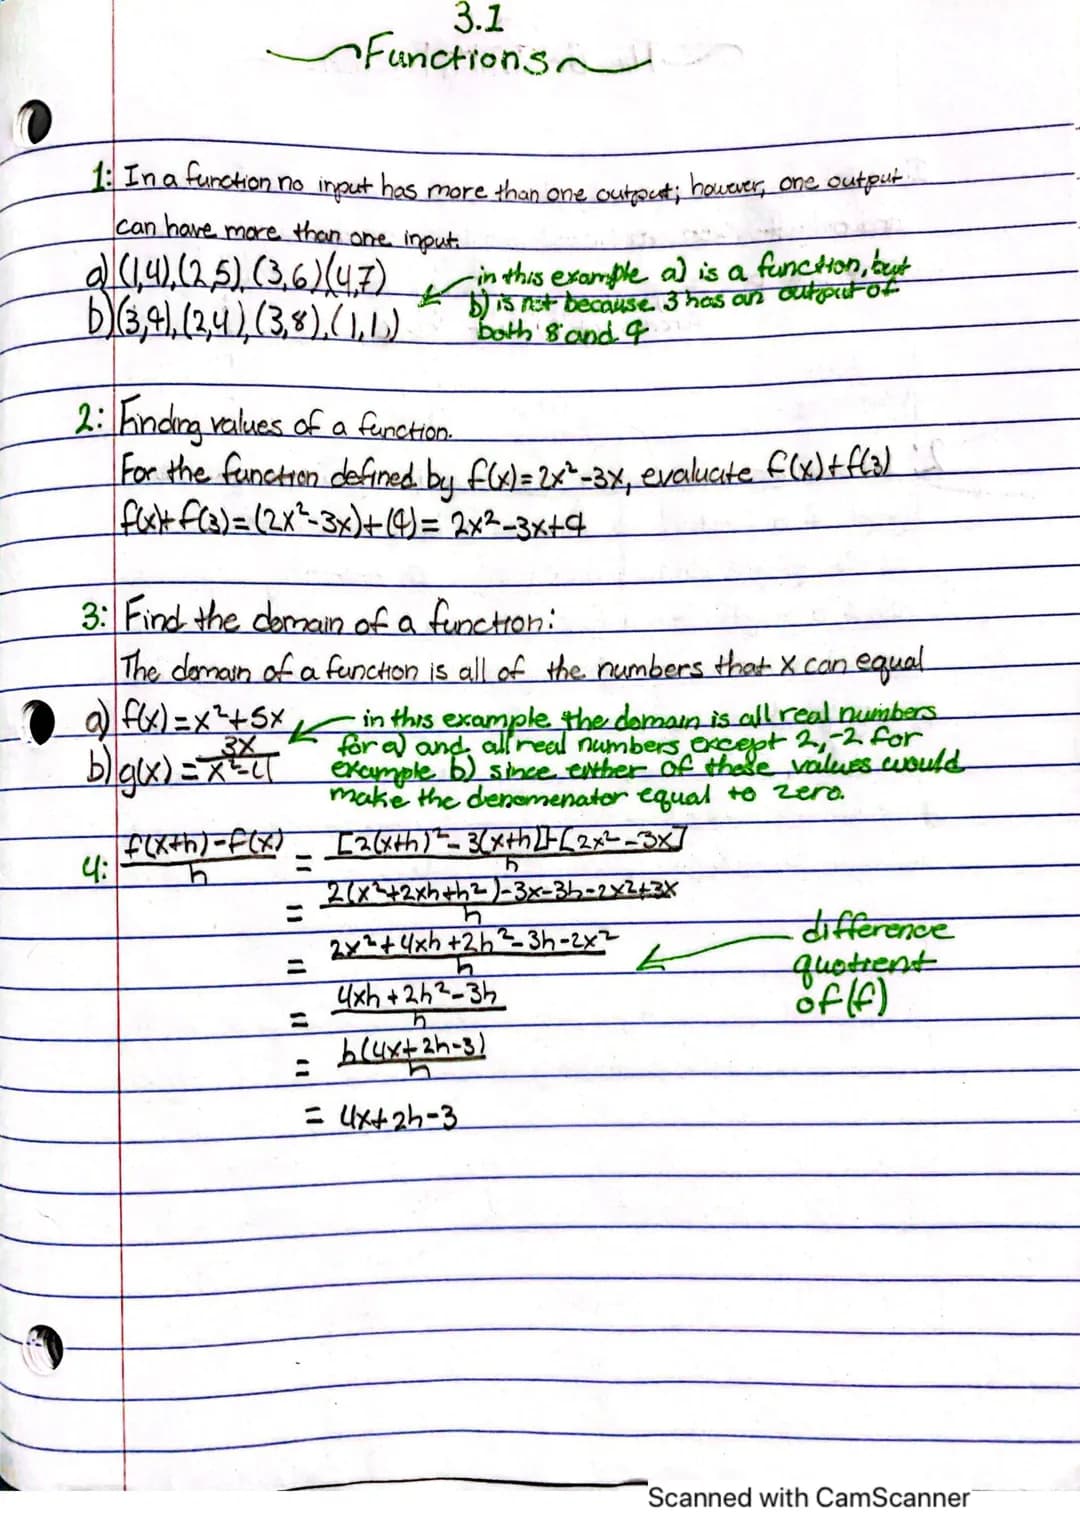 3.1
Functions
1: In a function no input has more than one output; however, one output
can have more than one input.
a) (1,4),(2,5),(3,6)(4,7)
b) (3,9),(2,4),(3,8),(1,1)
in this example a) is a function, but
b) is not because 3 has an output of
both 8 and 9
2: Finding values of a function.
For the function defined by f(x)=2x²-3x, evaluate f(x)+f(3)
f(x)+f(3)=(2x²-3x)+(9)= 2x²-3x+9
3: Find the domain of a function:
The domain of a function is all of the numbers that x can equal
a) f(x)=x²+5x
b) g(x)=3x/x²-4
in this example the domain is all real numbers
for a) and all real numbers except 2,-2 for
example b) since either of these values would
make the denomenator equal to zero.
4: f(x+h)-f(x)/h = [2(x+h)²-3(x+h)]-[2x²-3x]/h
= 2(x²+2xh+h²)-3x-3h-2x²+3x/h
= 2x²+4xh+2h²-3h-2x²/h
difference
quotient
of (f)
= 4xh+2h²-3h/h
= h(4x+2h-3)/h
= 4x+2h-3
Scanned with CamScanner